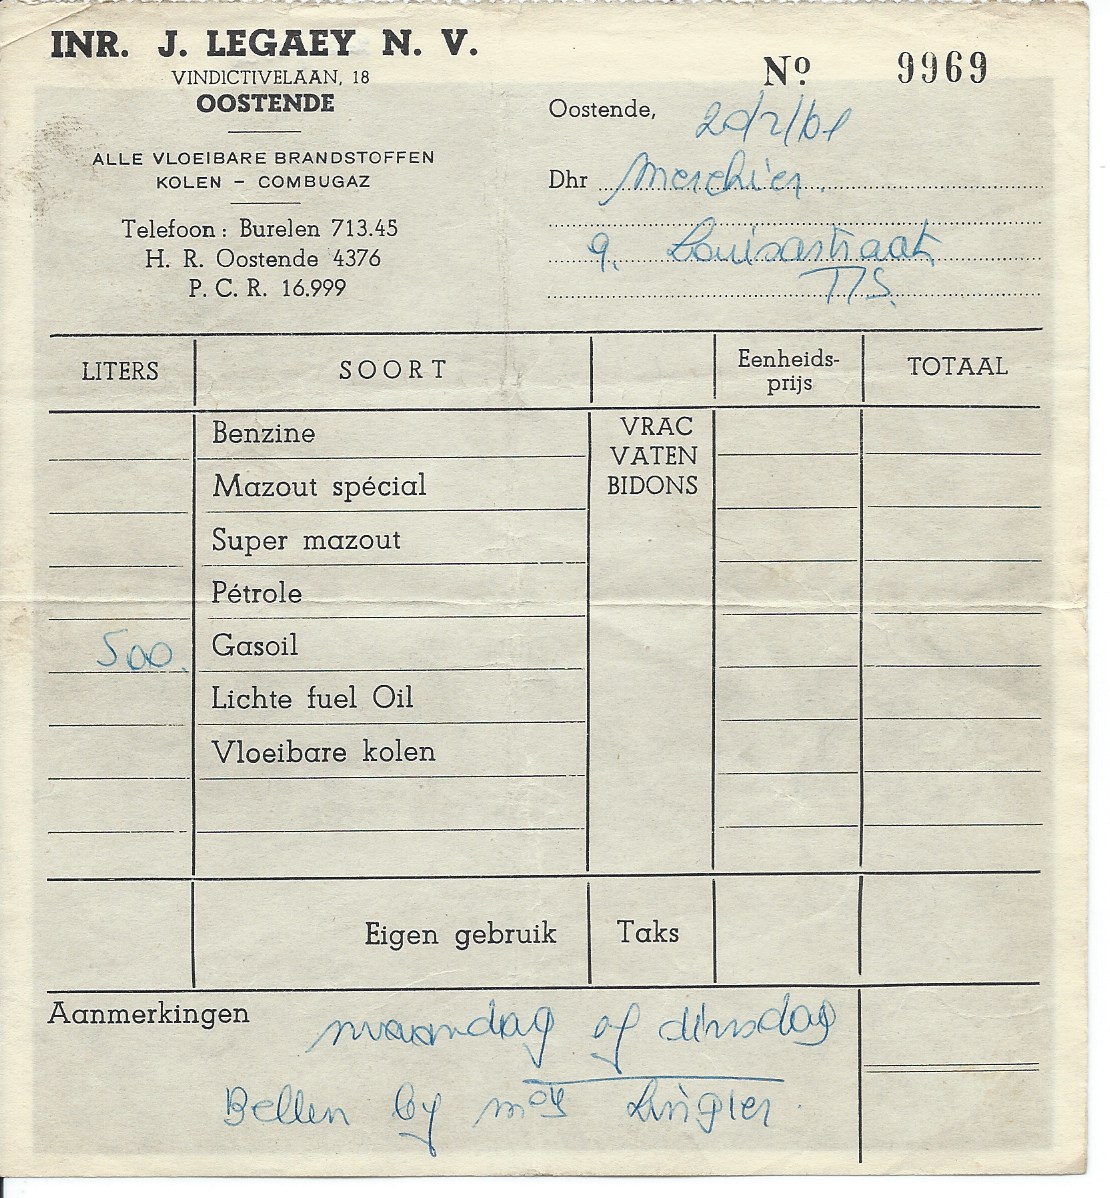 INR. J. LEGAEY N. V.
VINDICTIVELAAN, 18
OOSTENDE
ALLE VLOEIBARE BRANDSTOFFEN
KOLEN – COMBUGAZ
Telefoon : Burelen 713.45
H. R. Oostende 4376
P. C. R. 16.999
Nº 9969
Oostende,
Dhr Merchier.
9. Louisastraat
LITERS SOORT Eenheids-prijs TOTAAL
Benzine
Mazout spécial
Super mazout
Pétrole
500. Gasoil
Lichte fuel Oil
Vloeibare kolen
VRAC
VATEN
BIDONS
Eigen gebruik Taks
Aanmerkingen
maandag of dinsdag
Bellen by Lingier.